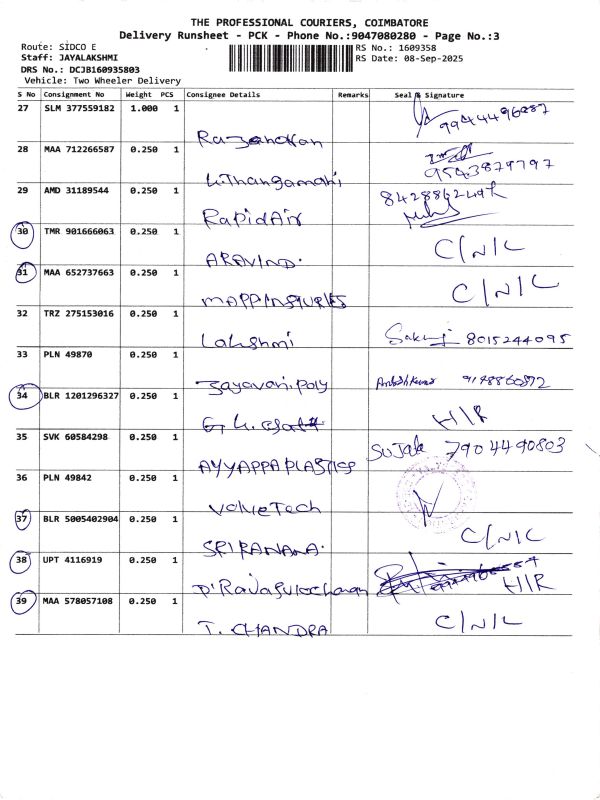 THE PROFESSIONAL COURIERS, COIMBATORE
Delivery Runsheet - PCK - Phone No.:9047080280 - Page No.:3
Route: SIDCO E
RS No.: 1609358
Staff: JAYALAKSHMI
RS Date: 08-Sep-2025
DRS No.: DCJB160935803
Vehicle: Two Wheeler Delivery
S No Consignment No Weight PCS Consignee Details Remarks Seal & Signature
27 SLM 377559182 1.000 1
28 MAA 712266587 0.250 1
9543879797
L.Thangamani
29 AMD 31189544 0.250 1
RapidAir
30 TMR 901666063 0.250 1 C/N/C
ARAVIND.
31 MAA 652737663 0.250 1 C/N/C
32 TRZ 275153016 0.250 1
Lakshmi 8015244095
33 PLN 49870 0.250 1
34 BLR 1201296327 0.250 1
H/R
35 SVK 60584298 0.250 1 7904490803
AYYAPPA PLASTICS
36 PLN 49842 0.250 1
Valve Tech
37 BLR 5005402904 0.250 1 C/N/C
38 UPT 4116919 0.250 1
H/R
39 MAA 578057108 0.250 1 C/N/C
T. CHANDRA